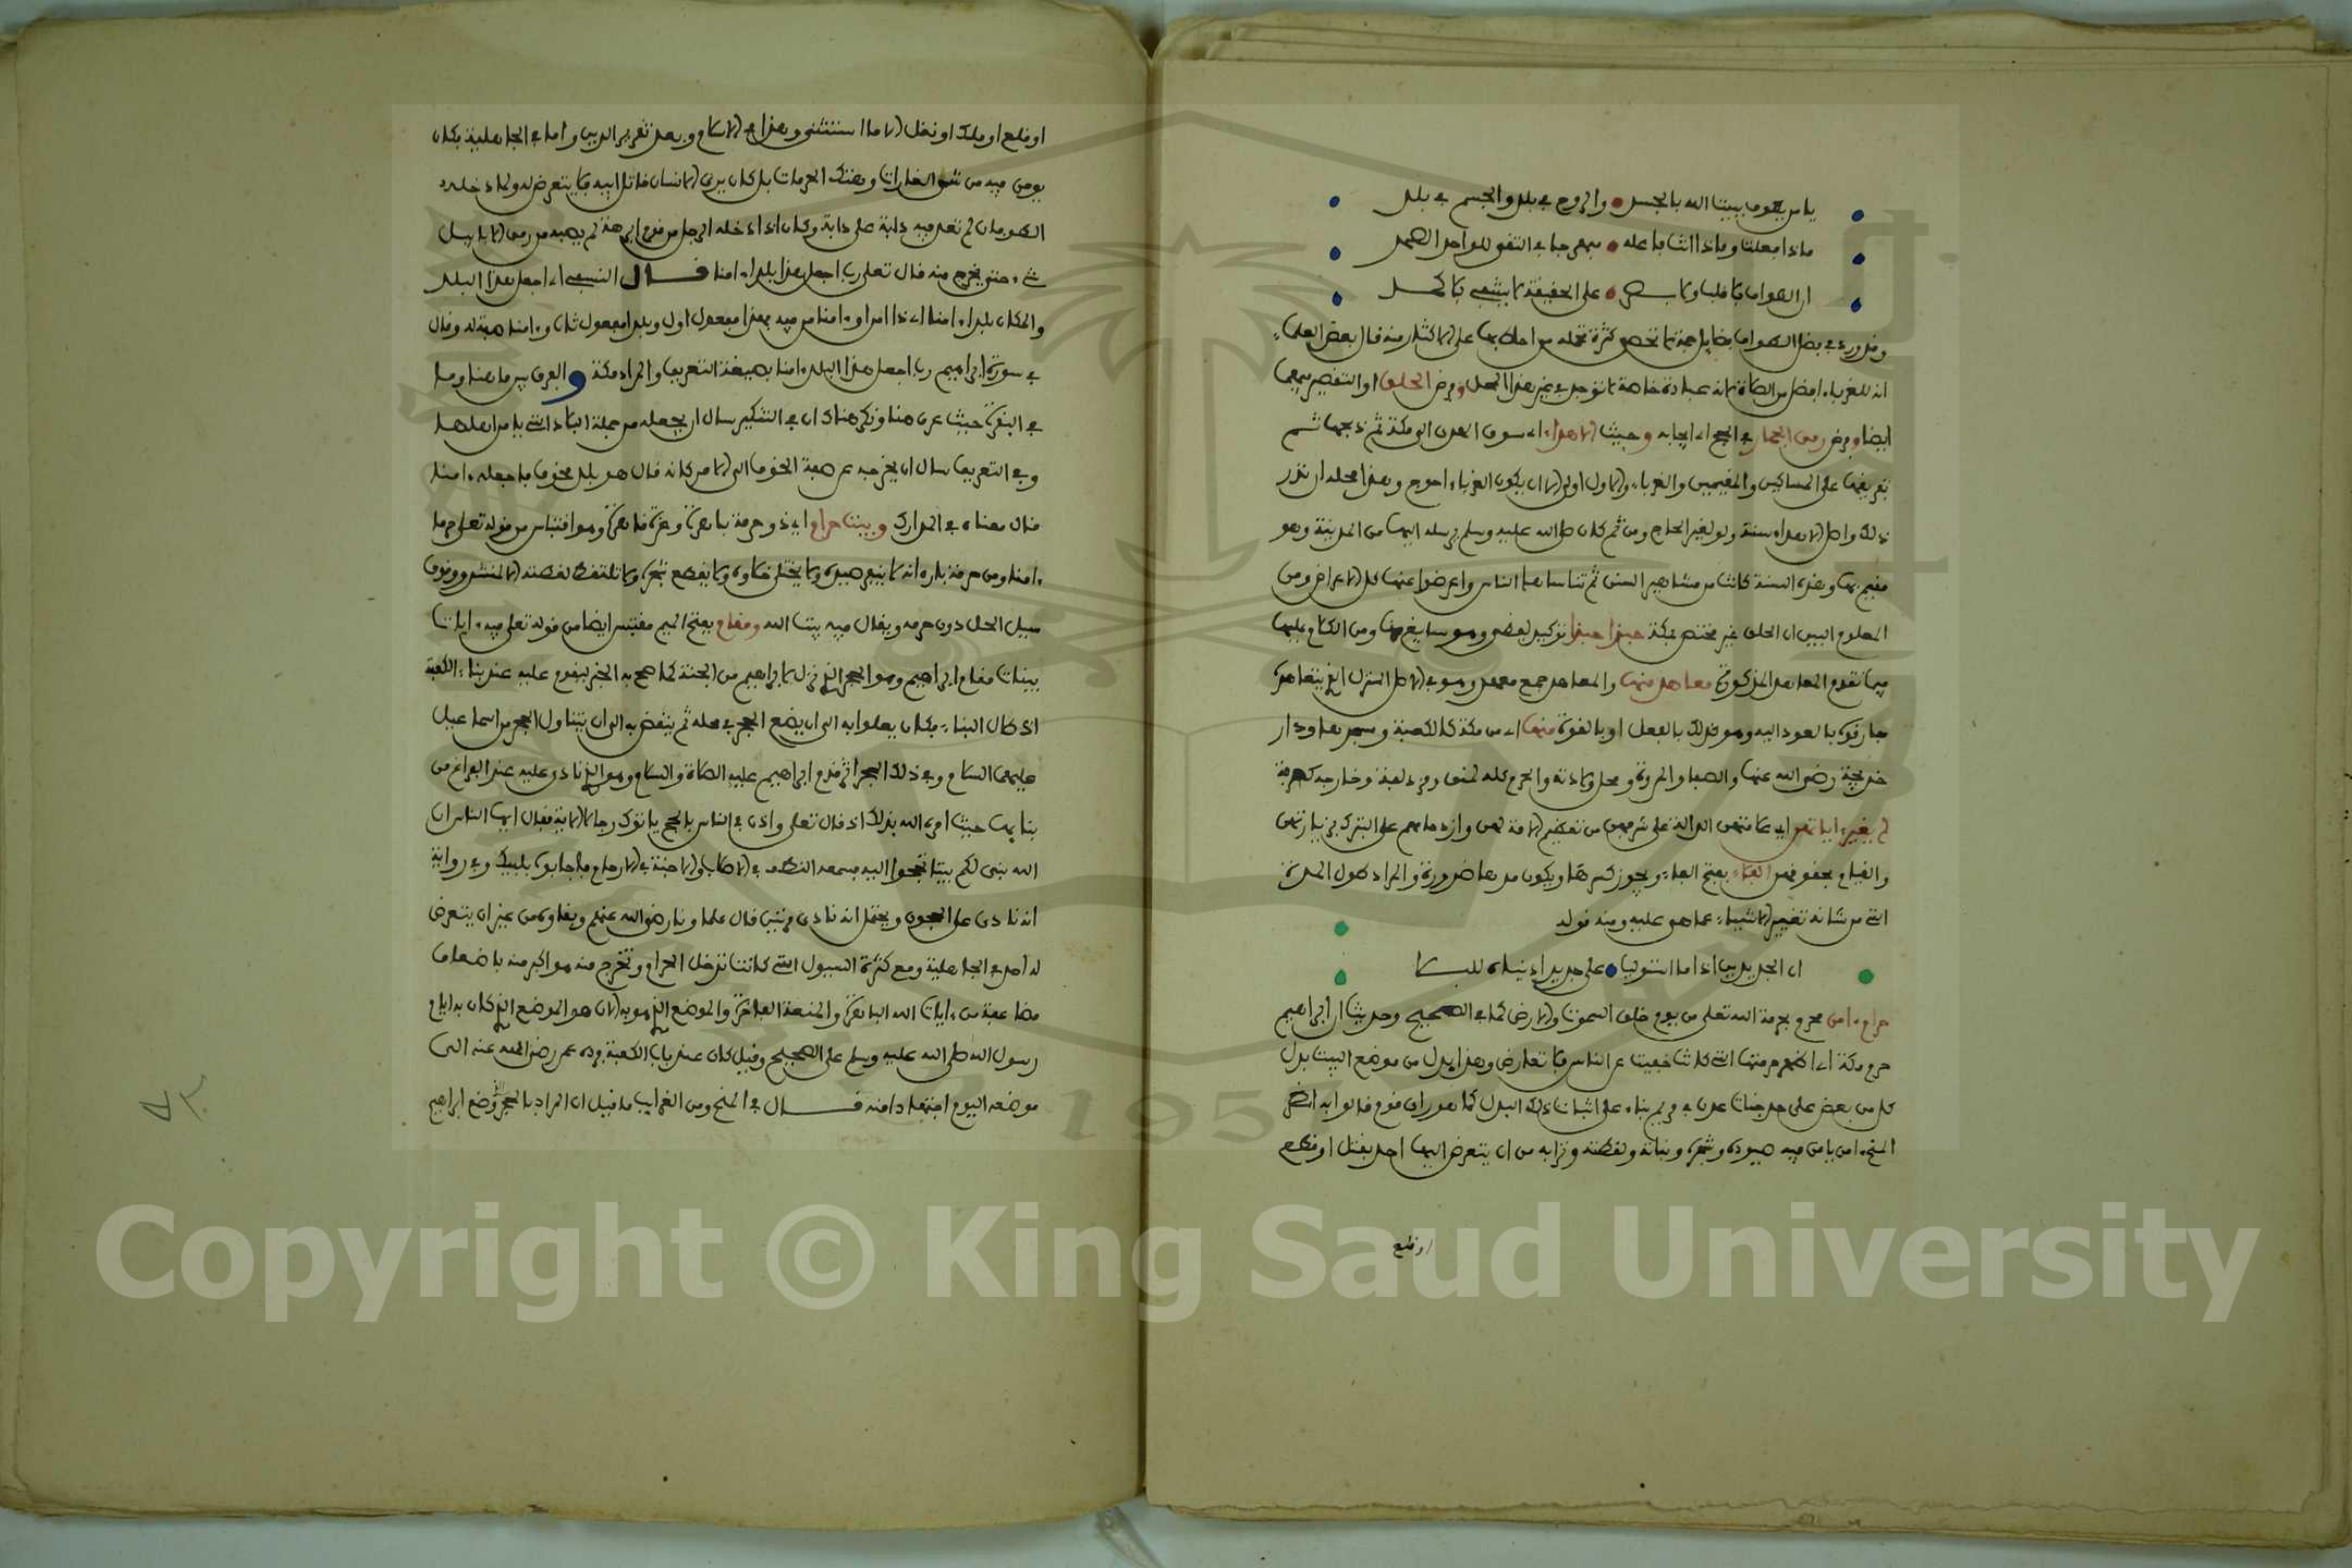 يا من يطوف ببيت الله بالجسد • والروح في بلد والجسم في بلد
ماذا فعلت وماذا انت فاعله • في التقى للواحد الصمد
ان الطواف بلا قلب ولا بصر • على الحقيقة لا يشفي
وقد ورد في فضل الطواف فضايل جمة لا تحصى كثرة تحمله من احاط بها على الاكثار منه قال بعض العلماء
انه للغرباء افضل من الصلاة لانه عبادة خاصة لا توجد في غير هذا المحل وفرض الحلق او التقصير فيهما
ايضا وفرض رمي الجمار في الحج اي ايجابه وحيث الاهداء اي سوق الهدي الى مكة ثم ذبحها ثم
تفريقها على المساكين والمقيمين والغرباء والاول اولى الا ان يكون الغرباء احوج وهذا محله ان نذر
ذلك واصل الاهداء سنة ولو لغير الحاج ومن ثم كان صلى الله عليه وسلم يرسله اليها من المدينة وهو
مقيم بها وهذه السنة كانت من مشاهير السنن ثم تناساها الناس واعرضوا عنها كل الاعراض ومن
المعلوم البين ان الحلق غير مختص بمكة حبذا حبذا توكيد لفظي وهو سايغ ومن الكلام عليها
فيما تقدم المعاهد المذكورة معاهد منها والمعاهد جمع معهد وهو في الاصل المنزل الذي يتعاهد
فارقوه بالعود اليه وهو كذلك بالفعل او بالقوة منها اي من مكة كالكعبة ومسجدها ودار
خديجة رضي الله عنها والصفا والمروة ومحل ولادته والحرم كله كمنى ومزدلفة وخارجه كعرفة
لم يغير اياتهن اي علامتهن الدالة على شرفهن من تعظيم الامة لهن وازدحامهم على التبرك بزيارتهن
والقيام بحقوقهن البلاء بفتح الباء ويجوز كسرها ويكون مدها ضرورة والمراد طول المدة
التي من شانه تغيير الاشياء عما هو عليه ومنه قوله
ان الجديدين اذا ما استوليا • على جديد ادنياه للبلا
حرام امن محرم بحرمة الله تعلى من يوم خلق السموات والارض كما في الصحيح وحديث ان ابراهيم
حرم مكة اي اظهر حرمتها التي كانت خفيت عن الناس فلا تعارض وهذا بدل من موضع البيت بدل
كل من بعض على حد جنات عدن في مريم بناء على اثبات ذلك البدل كما هو راي قوم قالوا به انظر
المنح امن يامن فيه صيوده وشجره ونباته ولقطته وترابه من ان يتعرض اليها احد بقتل او قطع
او قلع
او قلع او ملك او نقل الا ما استثني وهذا في الاسلام وبعد تقرير الدين واما في الجاهلية فكان
يومن فيه من شن الغارات وهتك الحرمات بل كان يرى الانسان قاتل ابيه فلا يتعرض له ولما دخله
الطوفان لم تعد فيه دابة على دابة وكان اذا دخله الرجل من قوم ابرهة لم يصبه من رمي الابابيل
شيء حتى يخرج منه قال تعلى رب اجعل هذا بلدا امنا قال النسفي اي اجعل هذا البلد
والمكان بلدا امنا اي ذا امن او امنا من فيه فهذا مفعول اول وبلدا مفعول ثان وامنا صفة له وقال
في سورة ابراهيم رب اجعل هذا البلد امنا بصيغة التعريف والمراد مكة والفرق بين ما هنا وما
في البقرة حيث عرف هنا ونكر هناك ان في التنكير سال ان يجعله من جملة البلاد التي يامن اهلها
وفي التعريف سال ان يخرجه عن صفة الخوف الى الامن كانه قال هو بلد مخوف فاجعله امنا
قال معناه في المدارك وبيت حرام اي ذو حرمة باهرة وعزة قاهرة وهو اقتباس من قوله تعلى حرما
امنا ومن حرمة بلده انه لا ينفر صيده ولا يختلى خلاه ولا يقطع شجره ولا تلتقط لقطته الا لمنشد
سبيل الحل دون حرمه ويقال فيه بيت الله ومقام بفتح الميم مقتبس ايضا من قوله تعلى فيه ايات
بينات مقام ابراهيم وهو الحجر الذي نزل لابراهيم من الجنة كما صح به الخبر ليقوم عليه عند بناء الكعبة
اذ طال البناء فكان يعلو به الى ان يضع الحجر في محله ثم ينقض به الى ان يتناول الحجر من اسماعيل
عليهما السلام وفي ذلك الحجر اثر قدم ابراهيم عليه الصلاة والسلام وهو الذي نادى عليه عند الفراغ من
بنايها حيث امره الله بذلك اذ قال تعلى واذن في الناس بالحج ياتوك رجالا الاية فقال ايها الناس ان
الله بنى لكم بيتا فحجوا اليه فسمعه النطف في الاصلاب والاجنة في الارحام فاجابوه بلبيك وفي رواية
انه نادى على الحجون ويحتمل انه نادى مرتين قال علماونا رضي الله عنهم وبقاوه من غير ان يتعرض
له احد في الجاهلية ومع كثرة السيول التي كانت تدخل الحرام وتخرج منه هو اكبر منه باضعاف
مضاعفة من ايات الله الباهرة والمنعة الفاخرة والموضع الذي هو به الان هو الموضع الذي كان به ايام
رسول الله صلى الله عليه وسلم على الصحيح وقيل كان عند باب الكعبة ورده عمر رضي الله عنه الى
موضعه اليوم اجتهادا منه قال في المنح ومن الغرايب ما قيل ان المراد بالحجر وضع ابراهيم
Copyright © King Saud University
195